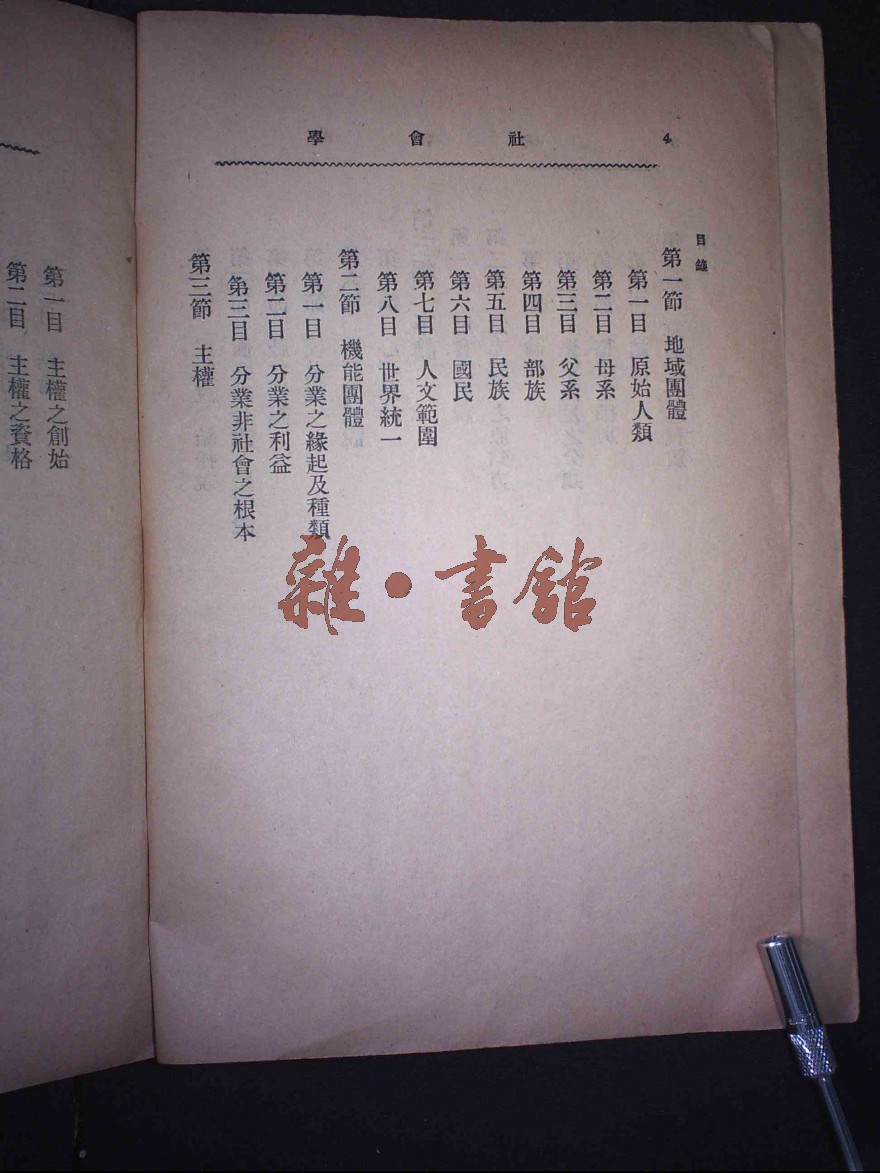 社會學
4
目錄
第一節 地域團體
第一目 原始人類
第二目 母系
第三目 父系
第四目 部族
第五目 民族
第六目 國民
第七目 人文範圍
第八目 世界統一
第二節 機能團體
第一目 分業之緣起及種類
第二目 分業之利益
第三目 分業非社會之根本
第三節 主權
第一目 主權之創始
第二目 主權之資格
雜·書館